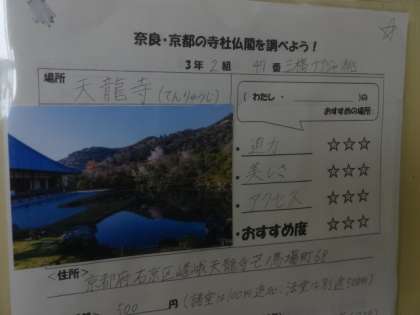 奈良・京都の寺社仏閣を調べよう！
3年 2 組
場所
天龍寺(てんりゅうじ)
(わたし・
おすすめの場所
・迫力 ☆☆☆
・美しさ ☆☆☆
・アクセス ☆☆☆
・おすすめ度 ☆☆☆
<住所>
京都府右京区嵯峨天龍寺芒ノ馬場町68
500 円